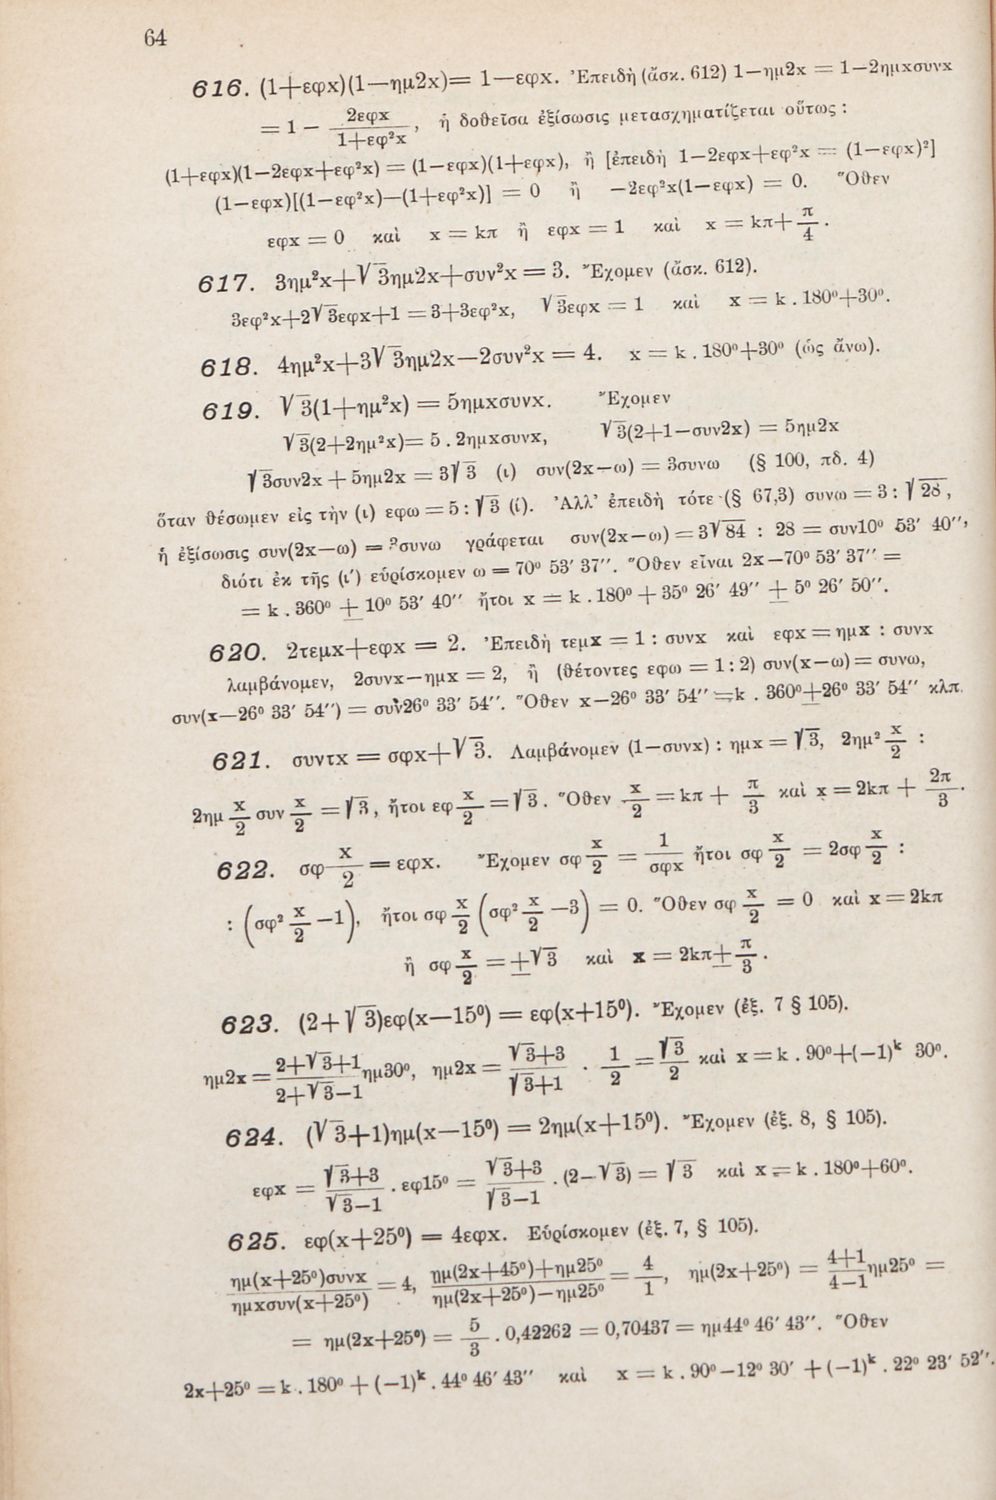 64
616. (1+εφx)(1—ημ2x)= 1—εφx. Ἐπειδὴ (ἄσκ. 612) 1—ημ2x = 1—2ημxσυνx
= 1 — 2εφx/(1+εφ²x), ἡ δοθεῖσα ἐξίσωσις μετασχηματίζεται οὕτως :
(1+εφx)(1—2εφx+εφ²x) = (1—εφx)(1+εφx), ἢ [ἐπειδὴ 1—2εφx+εφ²x = (1—εφx)²]
(1—εφx)[(1—εφ²x)—(1+εφ²x)] = 0 ἢ —2εφ²x(1—εφx) = 0. Ὅθεν
εφx = 0 καὶ x = kπ ἢ εφx = 1 καὶ x = kπ+π/4.
617. 3ημ²x+√3ημ2x+συν²x = 3. Ἔχομεν (ἄσκ. 612).
3εφ²x+2√3εφx+1 = 3+3εφ²x, √3εφx = 1 καὶ x = k . 180⁰+30⁰.
618. 4ημ²x+3√3ημ2x—2συν²x = 4. x = k . 180⁰+30⁰ (ὡς ἄνω).
619. √3(1+ημ²x) = 5ημxσυνx. Ἔχομεν
√3(2+2ημ²x)= 5 . 2ημxσυνx, √3(2+1—συν2x) = 5ημ2x
√3συν2x + 5ημ2x = 3√3 (ι) συν(2x—ω) = 3συνω (§ 100, πδ. 4)
ὅταν θέσωμεν εἰς τὴν (ι) εφω = 5 : √3 (ί). Ἀλλ' ἐπειδὴ τότε (§ 67,3) συνω = 3 : √28,
ἡ ἐξίσωσις συν(2x—ω) = 3συνω γράφεται συν(2x—ω) = 3√84 : 28 = συν10⁰ 53' 40'',
διότι ἐκ τῆς (ι') εὑρίσκομεν ω = 70⁰ 53' 37''. Ὅθεν εἶναι 2x—70⁰ 53' 37'' =
= k . 360⁰ ± 10⁰ 53' 40'' ἤτοι x = k . 180⁰ + 35⁰ 26' 49'' ± 5⁰ 26' 50''.
620. 2τεμx+εφx = 2. Ἐπειδὴ τεμx = 1 : συνx καὶ εφx = ημx : συνx
λαμβάνομεν, 2συνx—ημx = 2, ἢ (θέτοντες εφω = 1 : 2) συν(x—ω) = συνω,
συν(x—26⁰ 33' 54'') = συν26⁰ 33' 54''. Ὅθεν x—26⁰ 33' 54'' = k . 360⁰±26⁰ 33' 54'' κλπ.
621. συντx = σφx+√3. Λαμβάνομεν (1—συνx) : ημx = √3, 2ημ² x/2 :
2ημ x/2 συν x/2 = √3, ἤτοι εφ x/2 = √3. Ὅθεν x/2 = kπ + π/3 καὶ x = 2kπ + 2π/3.
622. σφ x/2 = εφx. Ἔχομεν σφ x/2 = 1/σφx ἤτοι σφ x/2 = 2σφ x/2 :
: (σφ² x/2 —1), ἤτοι σφ x/2 (σφ² x/2 —3) = 0. Ὅθεν σφ x/2 = 0 καὶ x = 2kπ
ἢ σφ x/2 = ±√3 καὶ x = 2kπ± π/3.
623. (2+√3)εφ(x—15⁰) = εφ(x+15⁰). Ἔχομεν (ἐξ. 7 § 105).
ημ2x = (2+√3+1)/(2+√3—1) ημ30⁰, ημ2x = (√3+3)/(√3+1) · 1/2 = √3/2 καὶ x = k . 90⁰+(—1)ᵏ 30⁰.
624. (√3+1)ημ(x—15⁰) = 2ημ(x+15⁰). Ἔχομεν (ἐξ. 8, § 105).
εφx = (√3+3)/(√3—1) . εφ15⁰ = (√3+3)/(√3—1) . (2—√3) = √3 καὶ x = k . 180⁰+60⁰.
625. εφ(x+25⁰) = 4εφx. Εὑρίσκομεν (ἐξ. 7, § 105).
ημ(x+25⁰)συνx/ημxσυν(x+25⁰) = 4, (ημ(2x+45⁰)+ημ25⁰)/(ημ(2x+25⁰)—ημ25⁰) = 4/1, ημ(2x+25⁰) = (4+1)/(4—1) ημ25⁰ =
= ημ(2x+25⁰) = 5/3 . 0,42262 = 0,70437 = ημ44⁰ 46' 43''. Ὅθεν
2x+25⁰ = k . 180⁰ + (—1)ᵏ . 44⁰ 46' 43'' καὶ x = k . 90⁰—12⁰ 30' + (—1)ᵏ . 22⁰ 23' 52''.